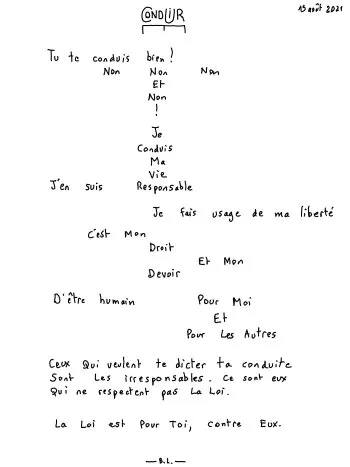 15 août 2021
CONDUIR
Tu te conduis bien !
Non Non Non
Et
Non
!
Je
Conduis
Ma
Vie
J'en suis Responsable
Je fais usage de ma liberté
C'est Mon
Droit
Et Mon
Devoir
D'être humain Pour Moi
Et
Pour Les Autres
Ceux Qui veulent te dicter ta conduite
Sont Les irresponsables. Ce sont eux
Qui ne respectent pas La Loi.
La Loi est Pour Toi, contre Eux.
— B.L. —